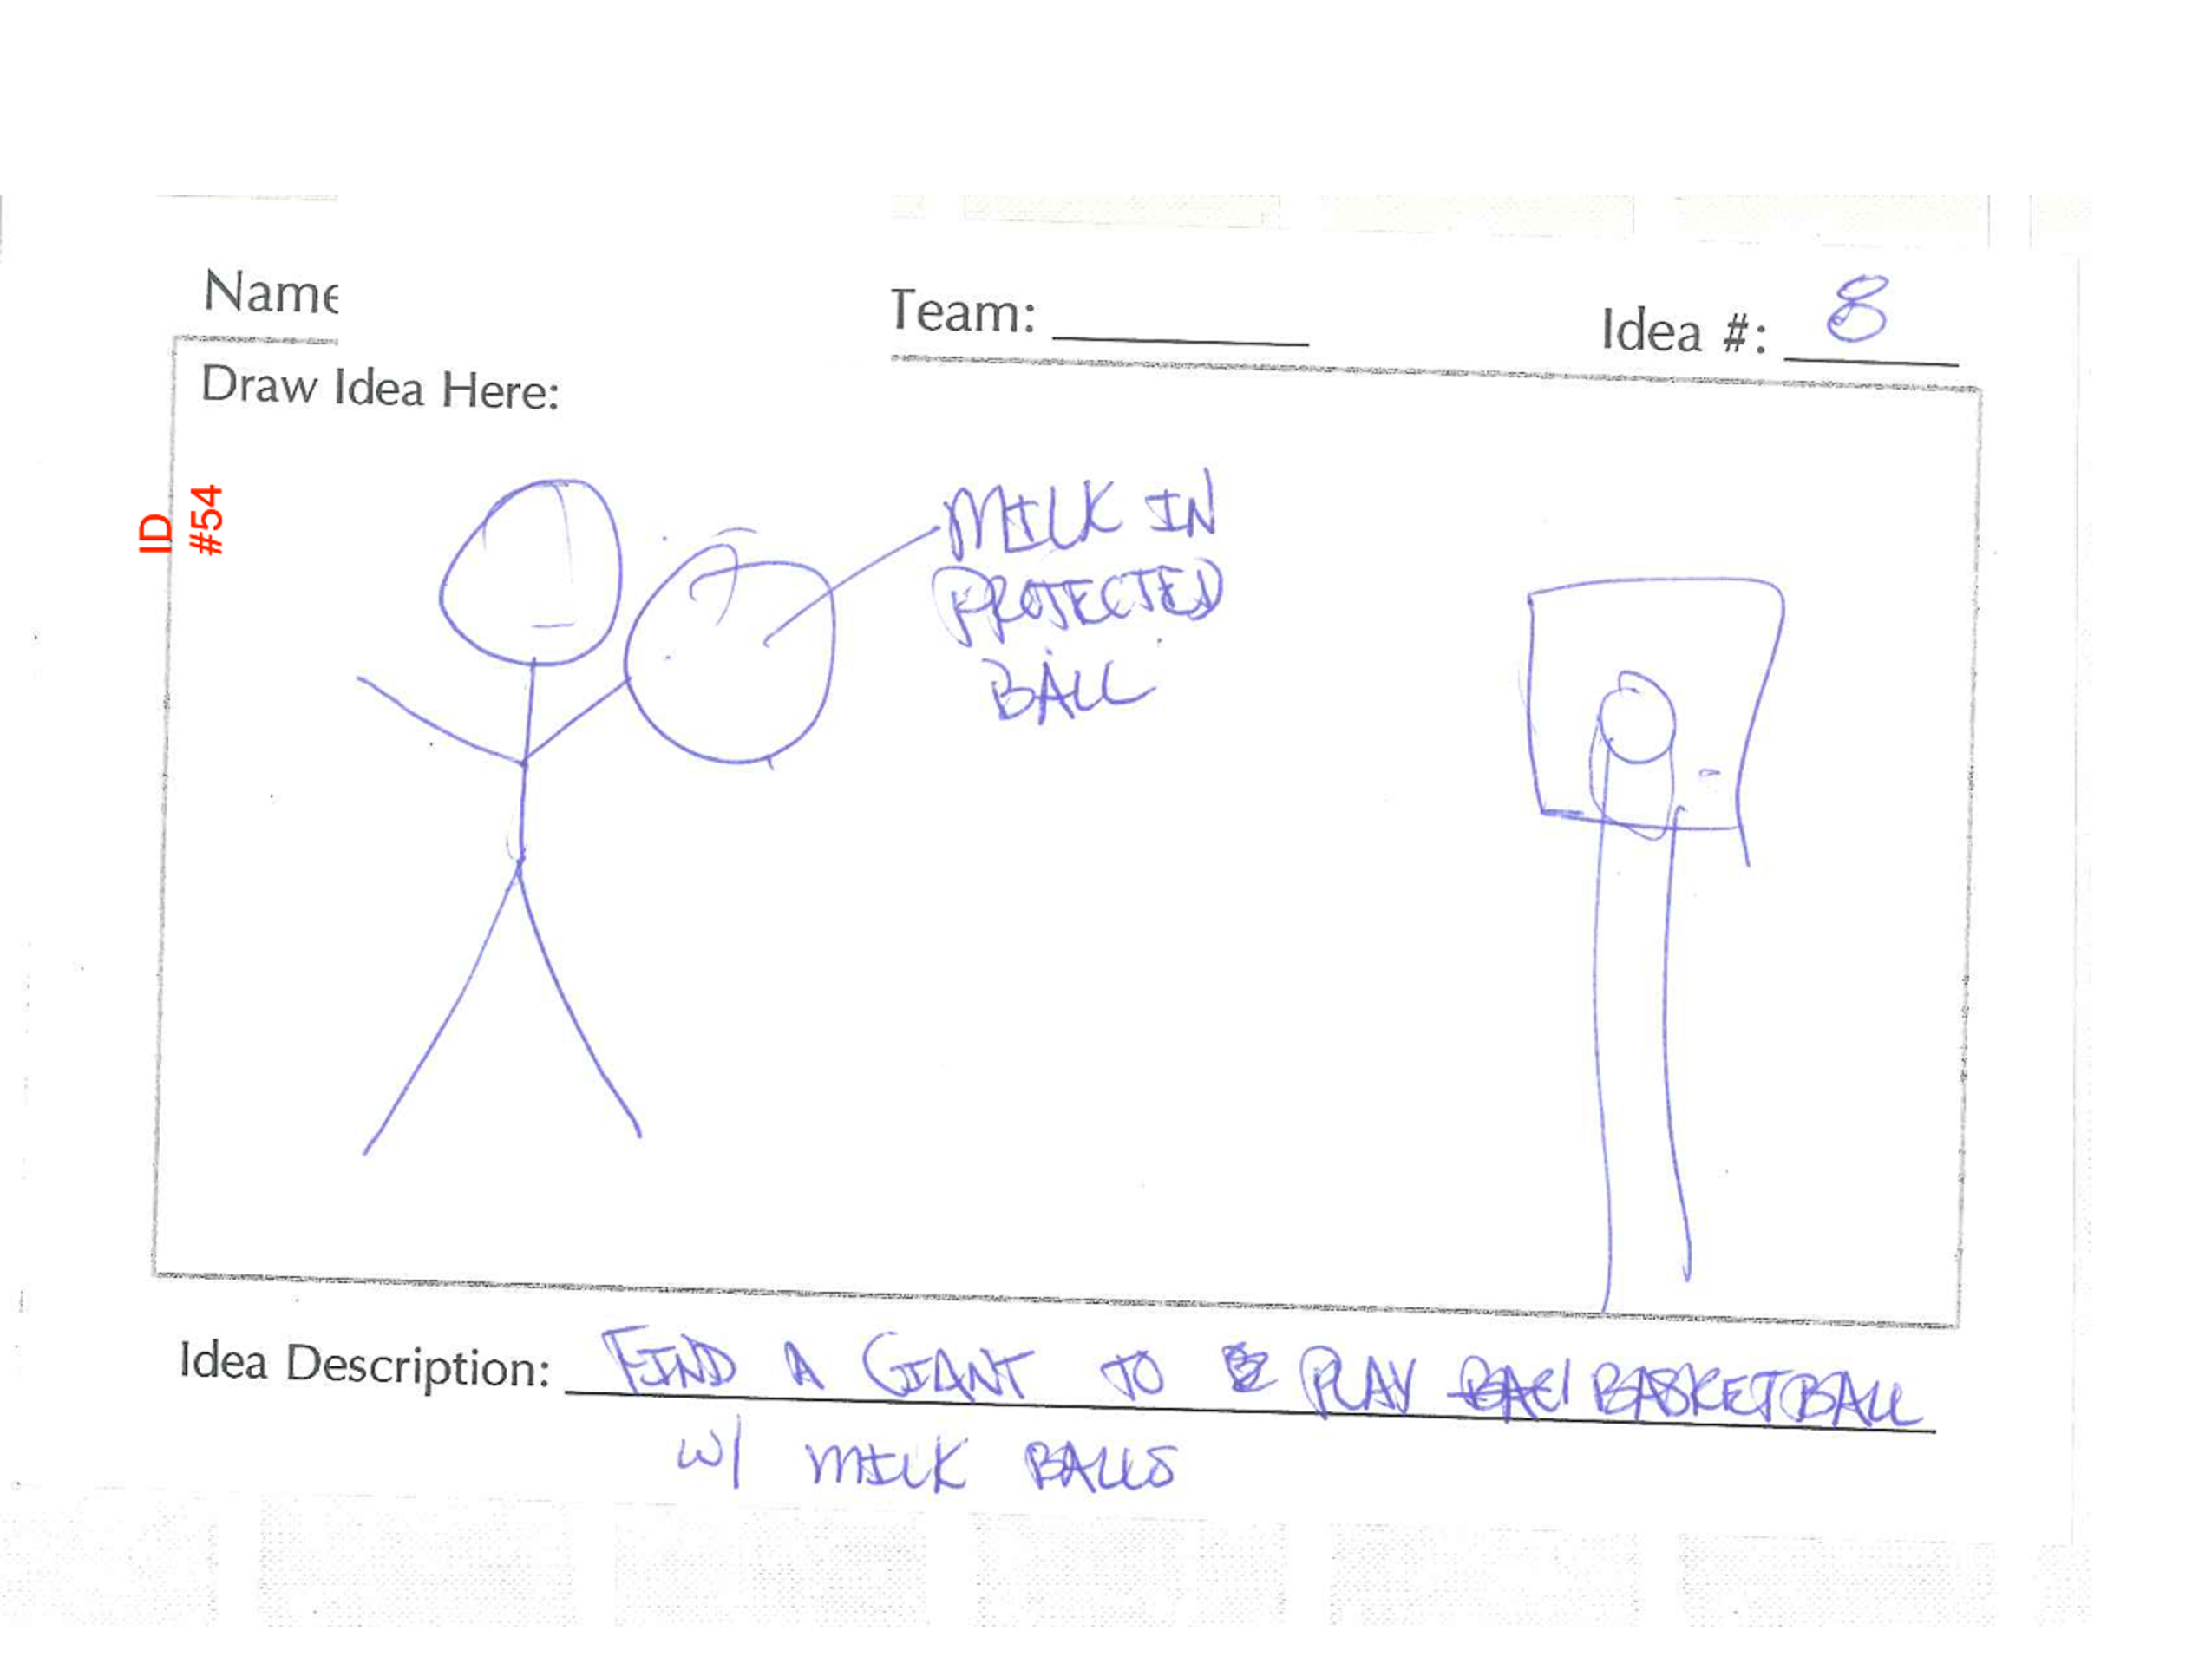 Name
Team:
Idea #: 8
Draw Idea Here:
ID
#54
MILK IN
PROTECTED
BALL
Idea Description: FIND A GIANT TO PLAY BASKETBALL
W/ MILK BALLS